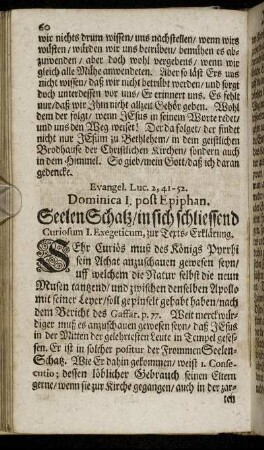 60
wir nichts drum wissen/ uns nachstellen/ wenn wirs
wüsten/ würden wir uns betrüben/ bemühen es ab-
zuwenden/ aber doch wohl vergebens/ wenn wir
gleich alle Mühe anwendeten. Aber so läst Ers uns
nicht wissen/ daß wir nicht betrübt werden/ und sorgt
doch unterdessen vor uns/ Er erinnert uns. Es fehlt
nur/ daß wir Ihm nicht allzeit Gehör geben. Wohl
dem der folgt/ wenn JEsus in seinem Worte redet/
und uns den Weg weiset! Der da folget/ der findet
nicht nur JEsum zu Bethlehem/ in dem geistlichen
Brodhause der Christlichen Kirchen/ sondern auch
in dem Himmel. So gieb/ mein Gott/ daß ich daran
gedencke.
Evangel. Luc. 2, 41-52.
Dominica I, post Epiphan.
Seelen Schatz/ in sich schliessend
Curiosum I. Exegeticum, zur Texts-Erklärung.
SEhr Curiös muß des Königs Pyrrhi
sein Achat anzuschauen gewesen seyn/
uff welchem die Natur selbst die neun
Musen tantzend/ und zwischen denselben Apollo
mit seiner Leyer/ soll gepinselt gehabt haben/ nach
dem Bericht des Gaffar. p. 77. Weit merckwür-
diger muß es anzuschauen gewesen seyn/ daß JEsus
in der Mitten der gelehrtesten Leute in Tempel geses-
sen. Er ist in solcher positur der Frommen Seelen-
Schatz. Wie Er dahin gekommen/ weist 1. Conse-
cutio; dessen löblicher Gebrauch seinen Eltern
gerne/ wenn sie zur Kirche gegangen/ auch in der zar-
ten